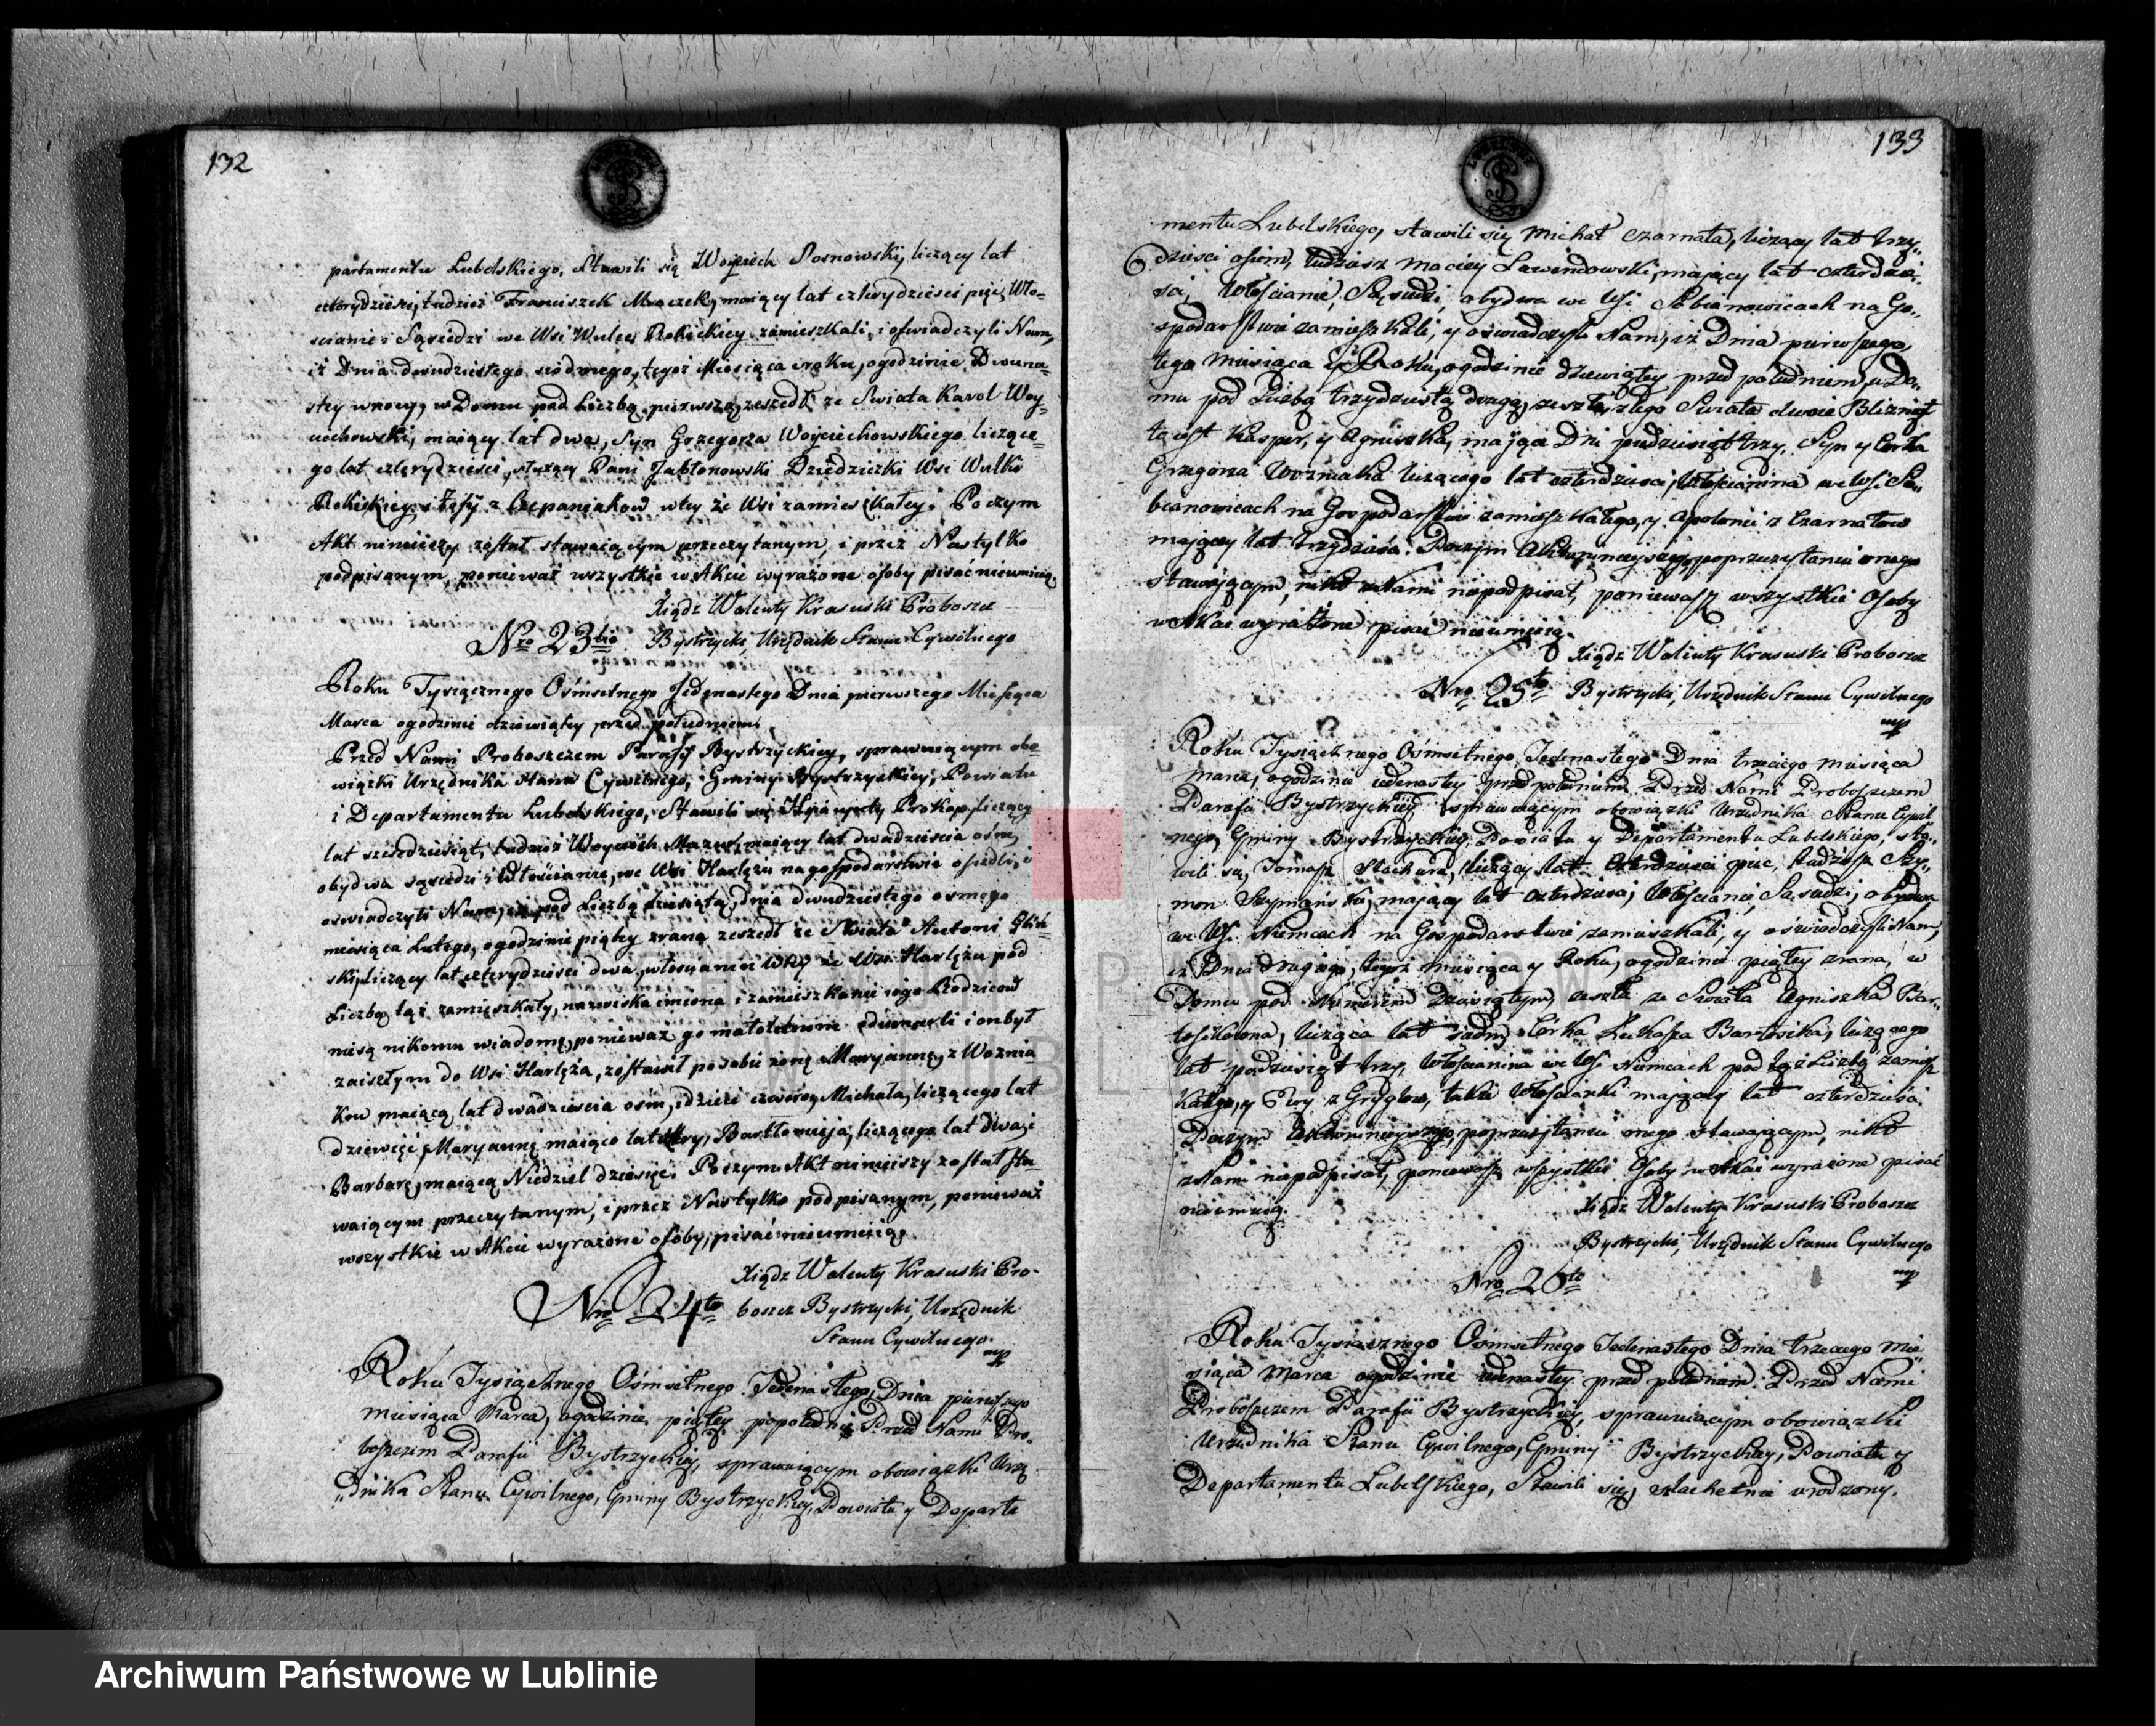 132
partamentu Lubelskiego, Stawili się Woyciech Sosnowski, liczący lat
czterydzieści, tudzież Franciszek Mroczek, maiący lat czterydzieści pięć, Wło-
ścianie i Sąsiedzi we Wsi Wulce Rokickiey zamieszkali, i oświadczyli Nam,
iż Dnia dwudziestego siódmego, tegoż Miesiąca i roku, o godzinie Dwuna-
stey w nocy, w Domu pod Liczbą pierwszą, zeszedł ze Swiata Karol Woy-
ciechowski, maiący lat dwa, Syn Grzegorza Woyciechowskiego liczące-
go lat czterydzieści, służący Pani Jabłonowski Dziedziczki Wsi Wulki
Rokickiey, i z Szczepaniaków w tey że Wsi zamieszkałey. Poczym
Akt ninieiszy został stawaiącym przeczytanym, i przez Nas tylko
podpisanym, ponieważ wszystkie w Akcie wyrażone osoby pisać nieumieią.
Xiądz Walenty Krasuski Proboszcz
Nro 23tio Bystrzycki, Urzędnik Stanu Cywilnego
Roku Tysiącznego Ośmsetnego Jedenastego Dnia pierwszego Miesiąca
Marca o godzinie dziewiątey przed południem.
Przed Nami Proboszczem Parafii Bystrzyckiey, sprawuiącym obo-
wiązki Urzędnika Stanu Cywilnego, Gminy Bystrzyckiey, Powiatu
i Departamentu Lubelskiego, Stawili się Prokop, liczący
lat sześćdziesiąt, tudzież Woyciech Mazur, maiący lat dwadzieścia ośm,
obydwa sąsiedzi i Włościanie, we Wsi Harlężu na gospodarstwie osiedli, i
oświadczyli Nam, iż pod Liczbą dziesiątą, dnia dwudziestego osmego
miesiąca Lutego, o godzinie piątey zrana zeszedł ze Swiata Antoni
ski, liczący lat czterydzieści dwa, włościanin w tey że Wsi Harlężu pod
Liczbą tąż zamieszkały, nazwiska imiona i zamieszkanie iego Rodziców
niesą nikomu wiadome, ponieważ go małoletnim odumarli i on był
zaiszłym do Wsi Harlęża, zostawił po sobie żonę Maryannę, z Woznia-
kow maiącą lat dwadzieścia ośm, i dzieci czworo, Michała, liczącego lat
dziewięć, Maryannę maiąco lat cztery, Bartłomieja, liczącego lat dwa, i
Barbarę, maiącą Niedziel dziesięć. Poczym Akt ninieiszy został sta-
waiącym przeczytanym, i przez Nas tylko podpisanym, ponieważ
wszystkie w Akcie wyrażone osoby, pisać nieumieią.
Xiądz Walenty Krasuski Pro-
Nro 24to boszcz Bystrzycki, Urzędnik
Stanu Cywilnego.
mp
Roku Tysiącznego Ośmsetnego Jedenastego, Dnia pierwszego
Miesiąca Marca, o godzinie piątey popołudniu Przed Nami Pro-
boszczem Parafii Bystrzyckiey, sprawuiącym obowiązki Urzę-
dnika Stanu Cywilnego, Gminy Bystrzyckiey, Powiatu y Departa
133
mentu Lubelskiego, stawili się Michał Czarnata, liczący lat trzy-
dzieści osiem, tudziesz Maciey Lawendowski, mający lat czterdzie-
ści, Włościanie, Sąsiedzi, obydwa we Wsi Sobianowicach na Go-
spodarstwie zamieszkali, y oświadczyli Nam, iż Dnia pierwszego,
tego Miesiąca y Roku, o godzinie dziewiątey przed południem, w Do-
mu pod Liczbą trzydziestą drugą, zeszło z tego Swiata dwoie Blizniąt
to iest Kasper, y Agnieszka, mające Dni pięćdziesiąt trzy, Syn y Córka
Grzegorza Wozniaka liczącego lat czterdzieści, Włościanina we Wsi So-
bianowicach na Gospodarstwie zamieszkałego, y Apolonii z Czarnatow
mającey lat trzydzieści. Poczym Akt ninieyszy, po przeczytaniu onego
stawającym, nikt z Nami niepodpisał, ponieważ wszystkie Osoby
w Akcie wyrażone pisać nieumieią.
Xiądz Walenty Krasuski Proboszcz
Nro 25to Bystrzycki, Urzędnik Stanu Cywilnego
mp
Roku Tysiącznego Ośmsetnego, Jedenastego Dnia trzeciego Miesiąca
Marca, o godzinie iedenastey przed południem. Przed Nami Proboszczem
Parafii Bystrzyckiey, sprawuiącym obowiązki Urzędnika Stanu Cywil-
nego, Gminy Bystrzyckiey, Powiatu y Departamentu Lubelskiego, sta-
wili się, Tomasz Stachura, liczący lat czterdzieści pięć, tudziesz Szy-
mon Szymanski, mający lat czterdzieści, Włościanie, Sąsiedzi, obydwa
we Wsi Niemcach na Gospodarstwie zamieszkali, y oświadczyli Nam,
iż Dnia drugiego, tegoż miesiąca y Roku, o godzinie piątey zrana, w
Domu pod Numerem Dziewiątym, zeszła ze Swiata Agnieszka Bar-
tosikowna, licząca lat siedm, Córka Łukasza Bartosika, liczącego
lat pięćdziesiąt trzy, Włościanina we Wsi Niemcach pod tąż Liczbą zamiesz
kałego, y Ewy z Gryglow, także Włościanki mającey lat czterdzieści.
Poczym Akt ninieyszy, po przeczytaniu onego stawaiącym, nikt
z Nami niepodpisał, ponieważ wszystkie Osoby w Akcie wyrażone pisać
nieumieią.
Xiądz Walenty Krasuski Proboszcz
Bystrzycki, Urzędnik Stanu Cywilnego
mp
Nro 26to
Roku Tysiącznego Ośmsetnego Jedenastego Dnia trzeciego Mie-
siąca Marca o godzinie iedenastey przed południem. Przed Nami
Proboszczem Parafii Bystrzyckiey, sprawuiącym obowiązki
Urzędnika Stanu Cywilnego, Gminy Bystrzyckiey, Powiatu y
Departamentu Lubelskiego, Stawili się, szlachetnie urodzony,
Archiwum Państwowe w Lublinie